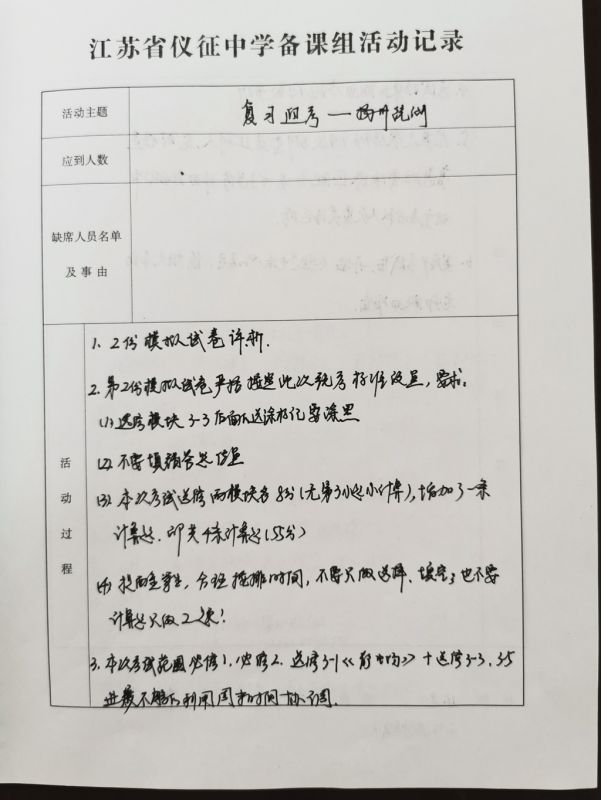 江苏省仪征中学备课组活动记录
活动主题
复习迎考——扬州统测
应到人数
缺席人员名单
及事由
活动过程
1. 2份模拟试卷评析.
2. 第2份模拟试卷严格按照此次统考标准设置，要求:
(1) 选修模块3-3后面的选涂标记要涂黑
(2) 不要填错答题位置
(3) 本次考试选修两模块各8分(无第3小题小计算),增加了一条
计算题.即共4条计算题(55分)
(4) 提醒学生，合理安排时间，不要只做选择、填空；也不要
计算题只做2条!
3. 本次考试范围必修1.必修2.选修3-1《静电场》+选修3-3、3-5
进度不够的利用周末时间协调.